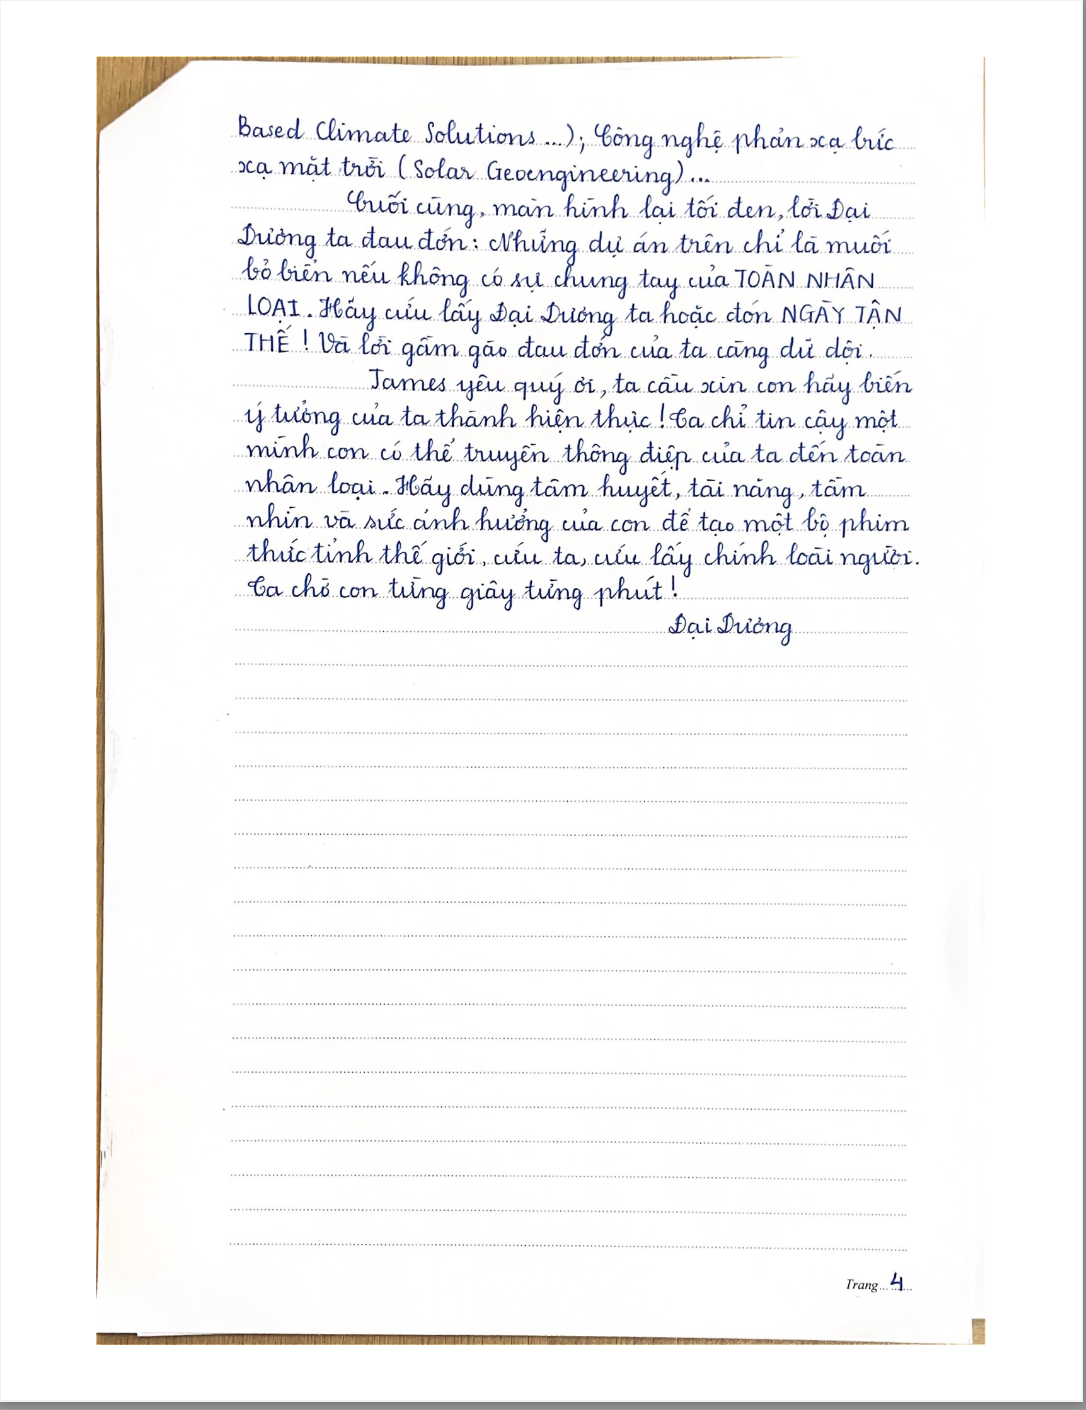 Based Climate Solutions...); Công nghệ phản xạ bức
xạ mặt trời (Solar Geoengineering)...
Cuối cùng, màn hình lại tối đen, lời Đại
Dương ta đau đớn: Những dự án trên chỉ là muối
bỏ biển nếu không có sự chung tay của TOÀN NHÂN
LOẠI. Hãy cứu lấy Đại Dương ta hoặc đón NGÀY TẬN
THẾ! Và lời gầm gào đau đớn của ta càng dữ dội.
James yêu quý ơi, ta cầu xin con hãy biến
ý tưởng của ta thành hiện thực! Ta chỉ tin cậy một
mình con có thể truyền thông điệp của ta đến toàn
nhân loại. Hãy dùng tâm huyết, tài năng, tầm
nhìn và sức ảnh hưởng của con để tạo một bộ phim
thức tỉnh thế giới, cứu ta, cứu lấy chính loài người.
Ta chờ con từng giây từng phút!
Đại Dương
Trang...4...